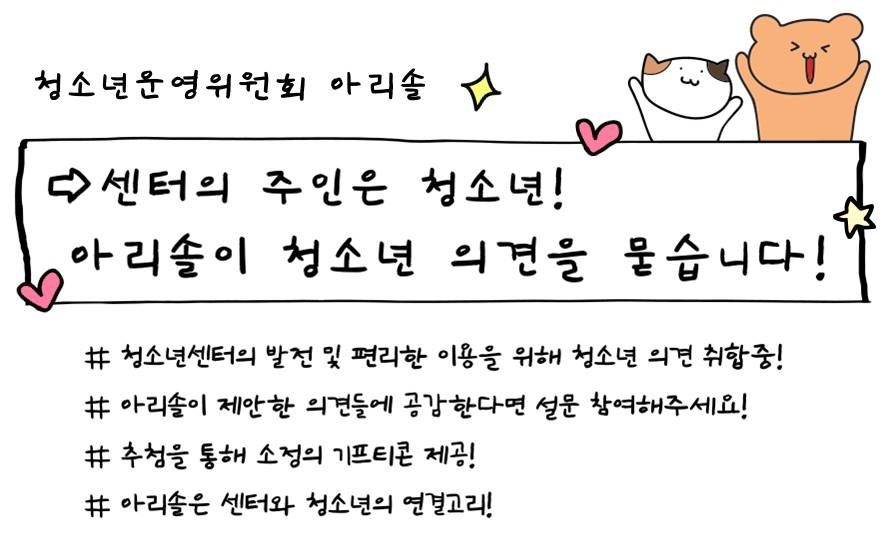 청소년운영위원회 아리솔
⇨센터의 주인은 청소년!
아리솔이 청소년 의견을 묻습니다!
# 청소년센터의 발전 및 편리한 이용을 위해 청소년 의견 취합중!
# 아리솔이 제안한 의견들에 공감한다면 설문 참여해주세요!
# 추첨을 통해 소정의 기프티콘 제공!
# 아리솔은 센터와 청소년의 연결고리!